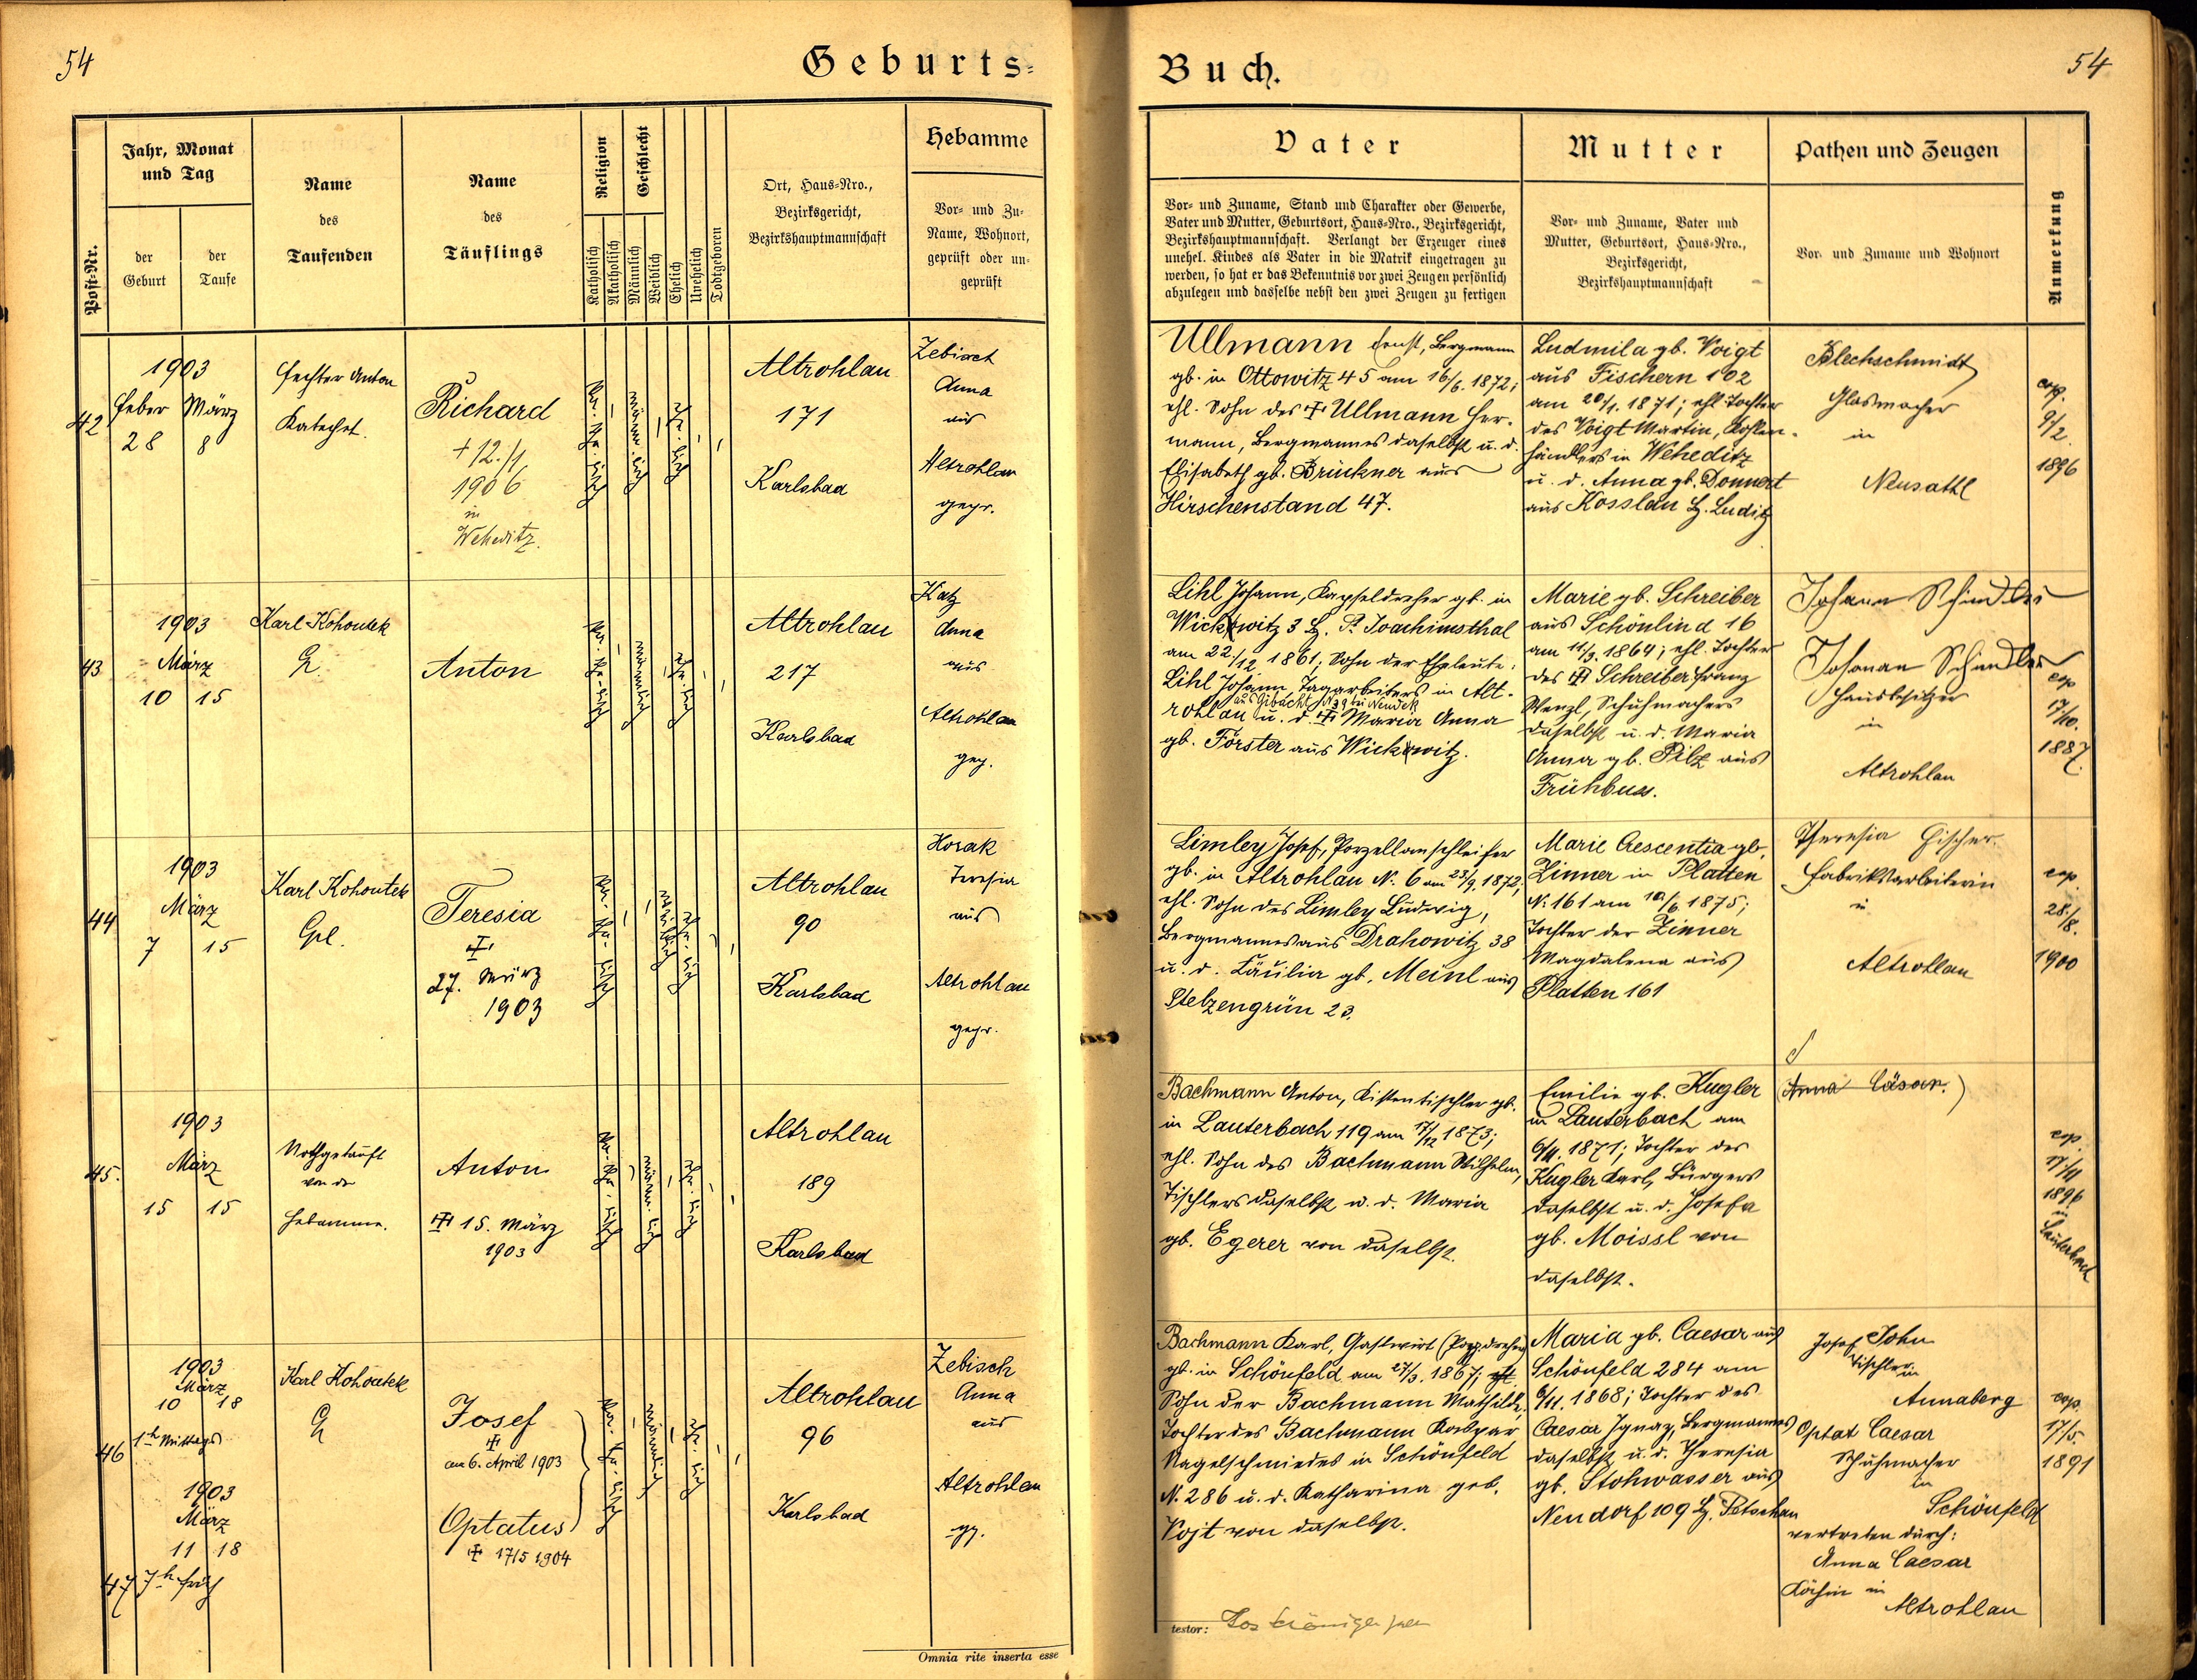 54
Geburts-
Post-Nr.
Jahr, Monat
und Tag
der
Geburt
der
Taufe
Name
des
Taufenden
Name
des
Täuflings
Religion
Katholisch
Akatholisch
Geschlecht
Männlich
Weiblich
Ehelich
Unehelich
Todtgeboren
Ort, Haus-Nro.,
Bezirksgericht,
Bezirkshauptmannschaft
Hebamme
Vor- und Zu-
Name, Wohnort,
geprüft oder un-
geprüft
42
1903
Feber März
28 8
Fechter Anton
Katechet.
Richard
+ 12./1
1906
in
Weheditz.
Altrohlau
171
Karlsbad
Zebisch
Anna
aus
Altrohlau
gepr.
43
1903
März
10 15
Karl Kohoutek
Anton
Altrohlau
217
Karlsbad
Katz
Anna
aus
Altrohlau
gep.
44
1903
März
7 15
Karl Kohoutek
Teresia
27. März
1903
Altrohlau
90
Karlsbad
Horak
Teresia
aus
Altrohlau
gepr.
45.
1903
März
15 15
Nothgetauft
von der
Hebamme.
Anton
15. März
1903
Altrohlau
189
Karlsbad
46
1903
März
10 18
1h Mittags
Karl Kohoutek
Josef
am 6. April 1903
Altrohlau
96
Karlsbad
Zebisch
Anna
aus
Altrohlau
gp.
47
1903
März
11 18
7h früh
Optatus
17/5 1904
Omnia rite inserta esse
Buch.
54
Vater
Vor- und Zuname, Stand und Charakter oder Gewerbe,
Vater und Mutter, Geburtsort, Haus-Nro., Bezirksgericht,
Bezirkshauptmannschaft. Verlangt der Erzeuger eines
unehel. Kindes als Vater in die Matrik eingetragen zu
werden, so hat er das Bekenntnis vor zwei Zeugen persönlich
abzulegen und dasselbe nebst den zwei Zeugen zu fertigen
Mutter
Vor- und Zuname, Vater und
Mutter, Geburtsort, Haus-Nro.,
Bezirksgericht,
Bezirkshauptmannschaft
Pathen und Zeugen
Vor- und Zuname und Wohnort
Anmerkung
Ullmann Ernst, Bergmann
gb. in Ottowitz 45 am 16/6. 1872;
ehl. Sohn des Ullmann Her-
mann, Bergmannes daselbst u. d.
Elisabeth gb. Brückner aus
Hirschenstand 47.
Ludmila gb. Voigt
aus Fischern 102
am 20/1. 1871; ehl. Tochter
des Voigt Martin, Kohlen-
händlers in Weheditz
u. d. Anna gb. Donnert
aus Kosslau Bz. Luditz
Blechschmidt
Glasmacher
in
Neusattl
cop.
9/2.
1896
Lihl Johann, Kapseldreher gb. in
Wickwitz 3 Bz. St. Joachimsthal
am 22./12 1861; Sohn der Eheleute:
Lihl Johann, Tagarbeiters in Alt-
rohlau u. d. Maria Anna
gb. Förster aus Wickwitz.
Marie gb. Schreiber
aus Schönlind 16
am 11/3. 1864; ehl. Tochter
des Schreiber Franz
Wenzl, Schuhmachers
daselbst u. d. Maria
Anna gb. Pilz aus
Frühbuss.
Johann Schindler
Johann Schindler
Hausbesitzer
in
Altrohlau
cop
17./10.
1887.
Limley Josef, Porzellanschleifer
gb. in Altrohlau N. 6 am 23/9. 1872;
ehl. Sohn des Limley Ludwig,
Bergmannes aus Drahowitz 38
u. d. Cäcilia gb. Meinl aus
Stelzengrün 23.
Marie Crescentia gb.
Zinner in Platten
N. 161 am 10/6. 1875;
Tochter der Zinner
Magdalena aus
Platten 161
Theresia Fischer
Fabriksarbeiterin
in
Altrohlau
cop.
28./8.
1900
Bachmann Anton, Kistentischler gb.
in Lauterbach 119 am 17/12 1873;
ehl. Sohn des Bachmann Wilhelm,
Tischlers daselbst u. d. Maria
gb. Egerer von daselbst.
Emilie gb. Kugler
in Lauterbach am
6/11. 1871; Tochter des
Kugler Karl, Bürgers
daselbst u. d. Josefa
gb. Moissl von
daselbst.
(Anna Cäsar.)
cop.
17/11
1896
in
Lauterbach
Bachmann Karl, Gastwirt (Porz.dreher)
gb. in Schönfeld am 27/3. 1867;
Sohn der Bachmann Mathilde,
Tochter des Bachmann Kaspar
Nagelschmiedes in Schönfeld
N. 286 u. d. Katharina geb.
Vojt von daselbst.
Maria gb. Caesar aus
Schönfeld 284 am
6/11. 1868; Tochter des
Caesar Ignaz, Bergmannes
daselbst u. d. Theresia
gb. Stohwasser aus
Neudorf 109 Bz. Petschau
Josef John
Tischler in
Annaberg
Optat Caesar
Schuhmacher
in
Schönfeld
vertreten durch:
Anna Caesar
Köchin in
Altrohlau
cop.
17/5.
1891
testor: